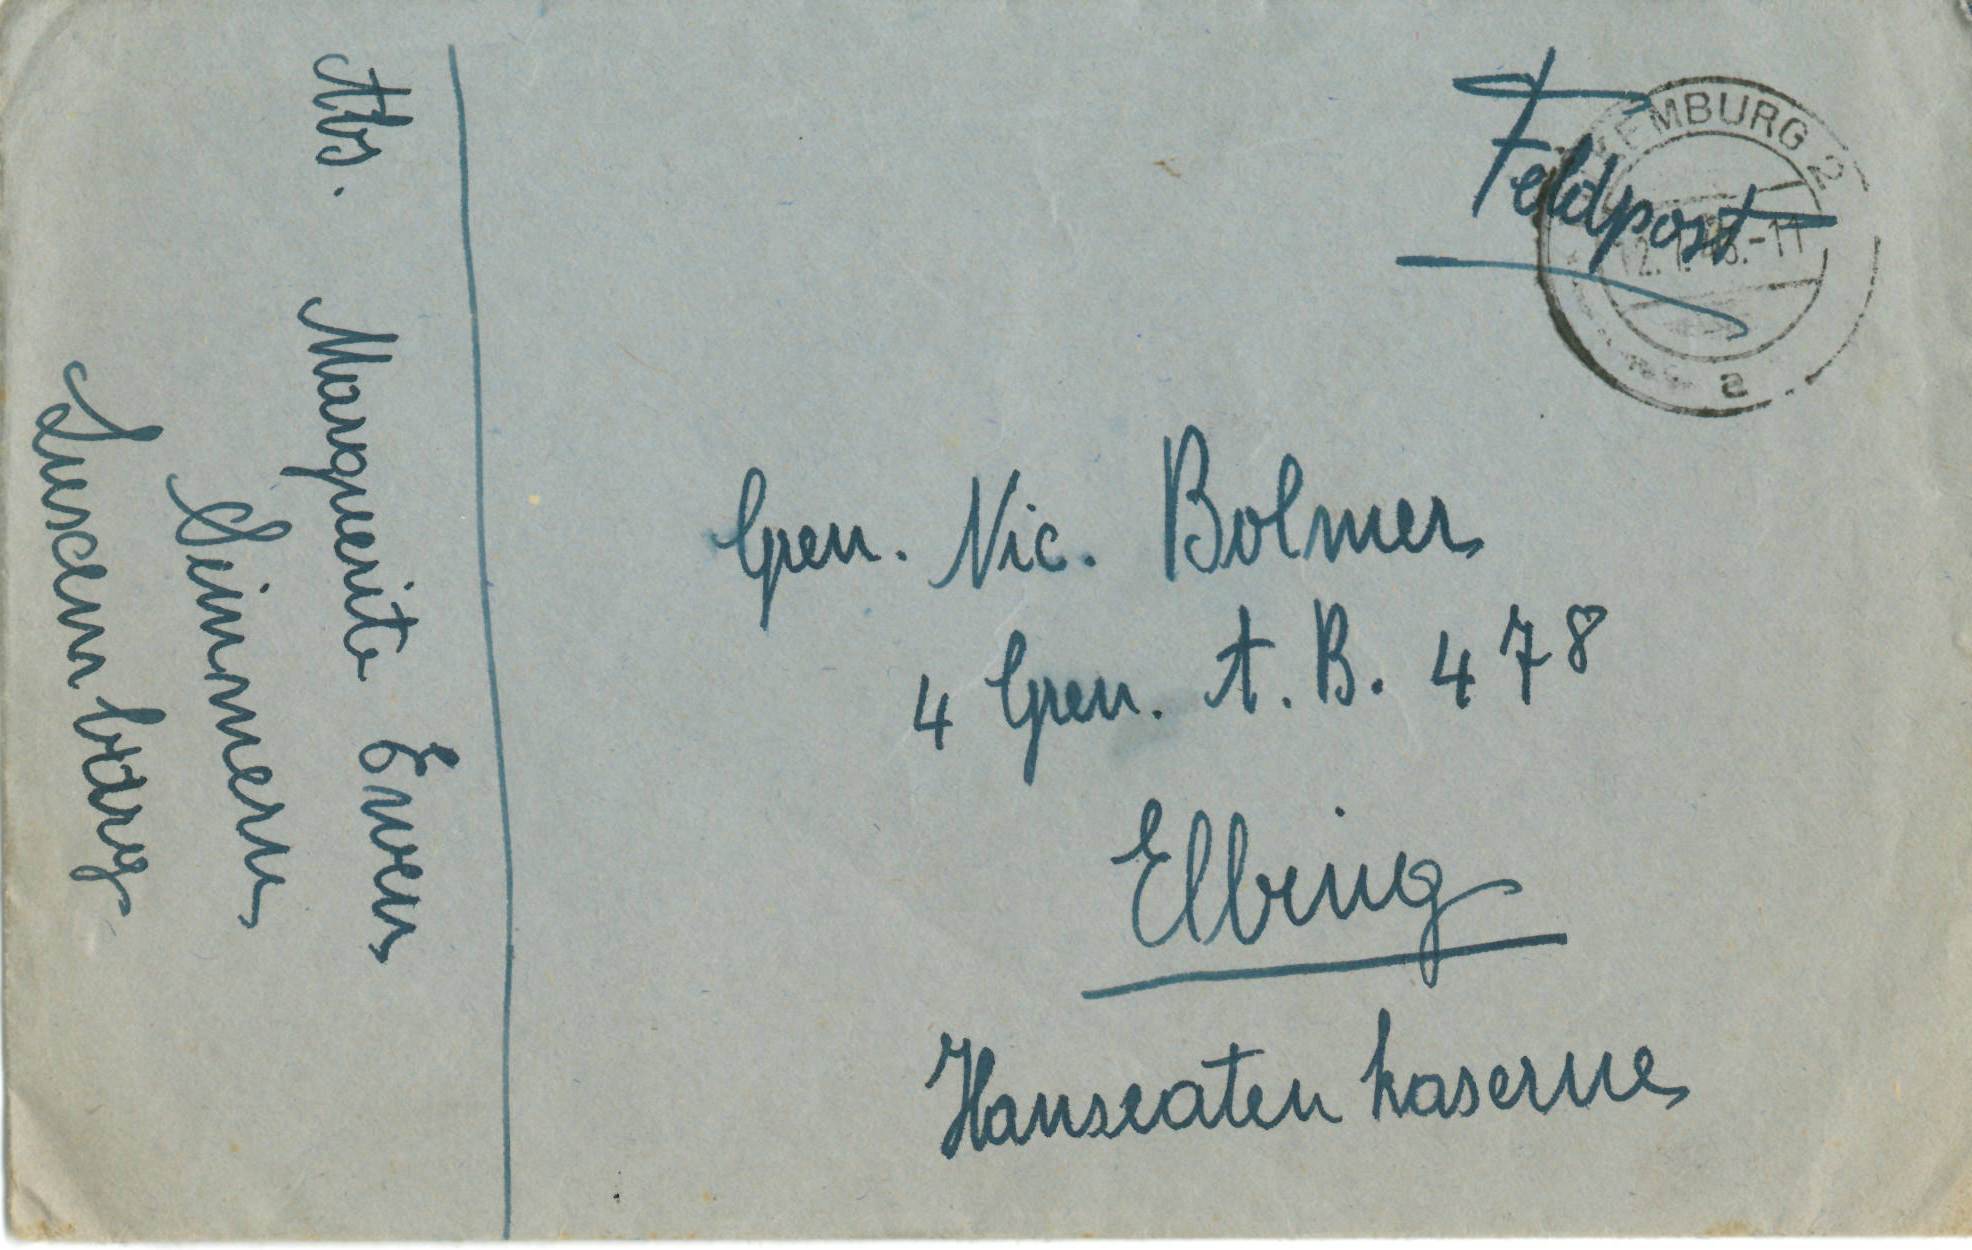 Feldpost
LUXEMBURG 2
12.1.43.-11
a
Gren. Nic. Bolmer
4 Gren. A. B. 478
Elbing
Hanseatenkaserne
Abs. Marguerite Ewen
Simmern
Luxemburg